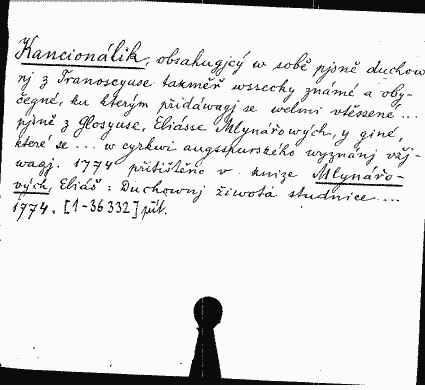 Kancionálik, obsahugjcý w sobě pjsně duchow
nj z Tranoscyuse takměř wssecky známé a oby-
čegné, ku kterým přidáwagj se welmi vtěssené ...
pjsně z Glosyuse, Eliásse Mlynářowých, y giné,
které se ... w cyrkwi augspurského wyznánj vžj-
wagj. 1774 přitištěno v knize Mlynářo-
vých, Eliáš: Duchownj žiwota studnice ...
1774. [1-36 332] příl.